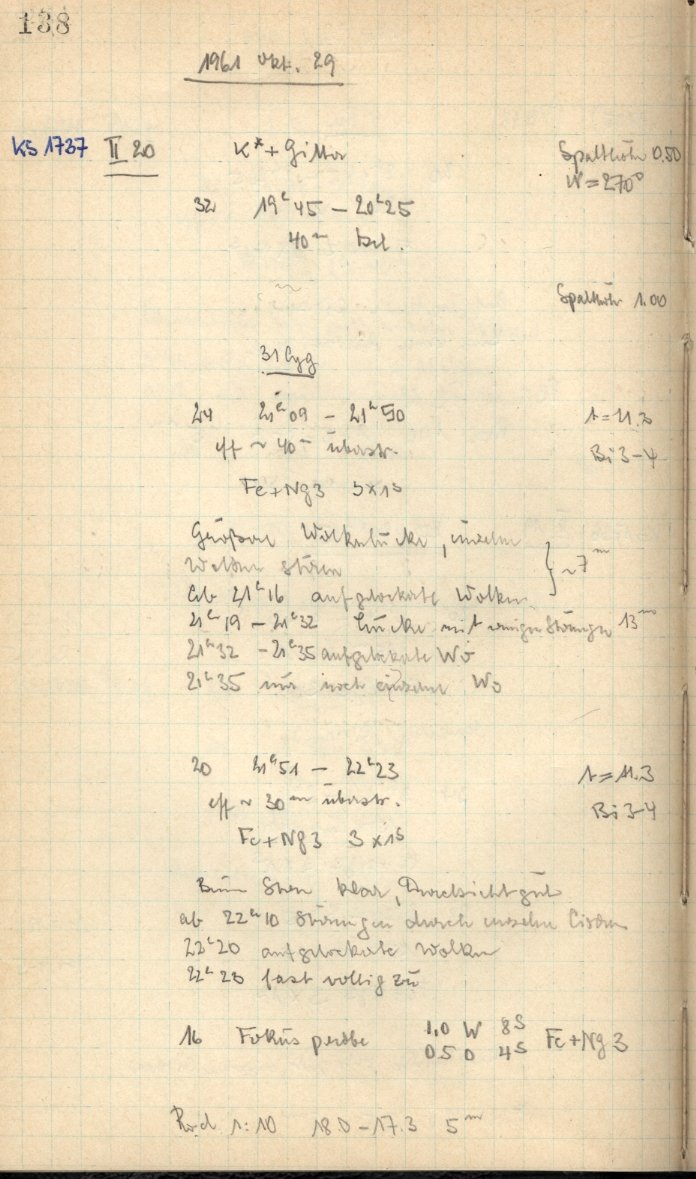 138
1961 Okt. 29
KS 1737 II 20 K*+Gitter Spalthöhe 0.50
W=270°
32 19ʰ45 – 20ʰ25
40ᵐ bel.
Spalthöhe 1.00
31 Cyg
24 21ʰ09 – 21ʰ50
eff ~ 40ᵐ überstr. Bi 3–4
Fe+Ng3 5x1ˢ
Größere Wolkenlücke, einzelne
Wolken stören } ~7ᵐ
Ab 21ʰ16 aufgelockerte Wolken
21ʰ19 – 21ʰ32 Lücke mit einigen Störungen 13ᵐ
21ʰ32 – 21ʰ35 aufgelockerte Wo
21ʰ35 nur noch einzelne Wo
20 21ʰ51 – 22ʰ23 t=11.3
eff ~ 30ᵐ überstr. Bi 3–4
Fe+Ng3 3x1ˢ
Beim Stern klar, Durchsicht gut
ab 22ʰ10 Störungen durch einzelne Cirren
22ʰ20 aufgelockerte Wolken
22ʰ23 fast völlig zu
16 Fokusprobe 1.0 W 8S Fe+Ng3
0.5 O 4S
1:10 18.0 – 17.3 5ᵐ